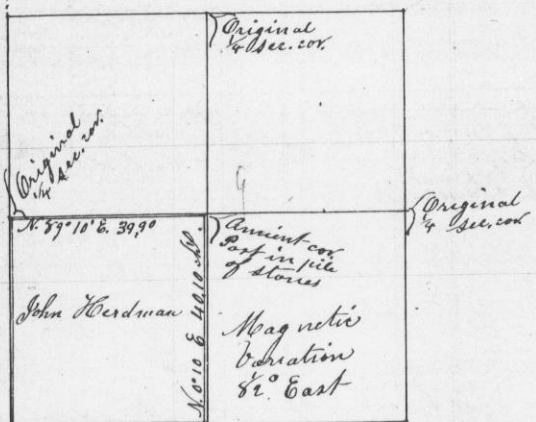 Original
1/4 sec. cor.
Original
1/4 sec. cor.
Original
1/4 sec. cor.
N. 89° 10' E. 39,90
Ancient cor.
Post in pile
of stones
John Herdman
N. 0° 10 E 40,10
Magnetic
Variation
8 1/2° East